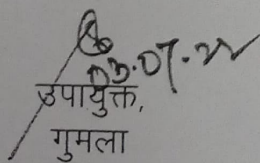 03.07.22
उपायुक्त,
गुमला